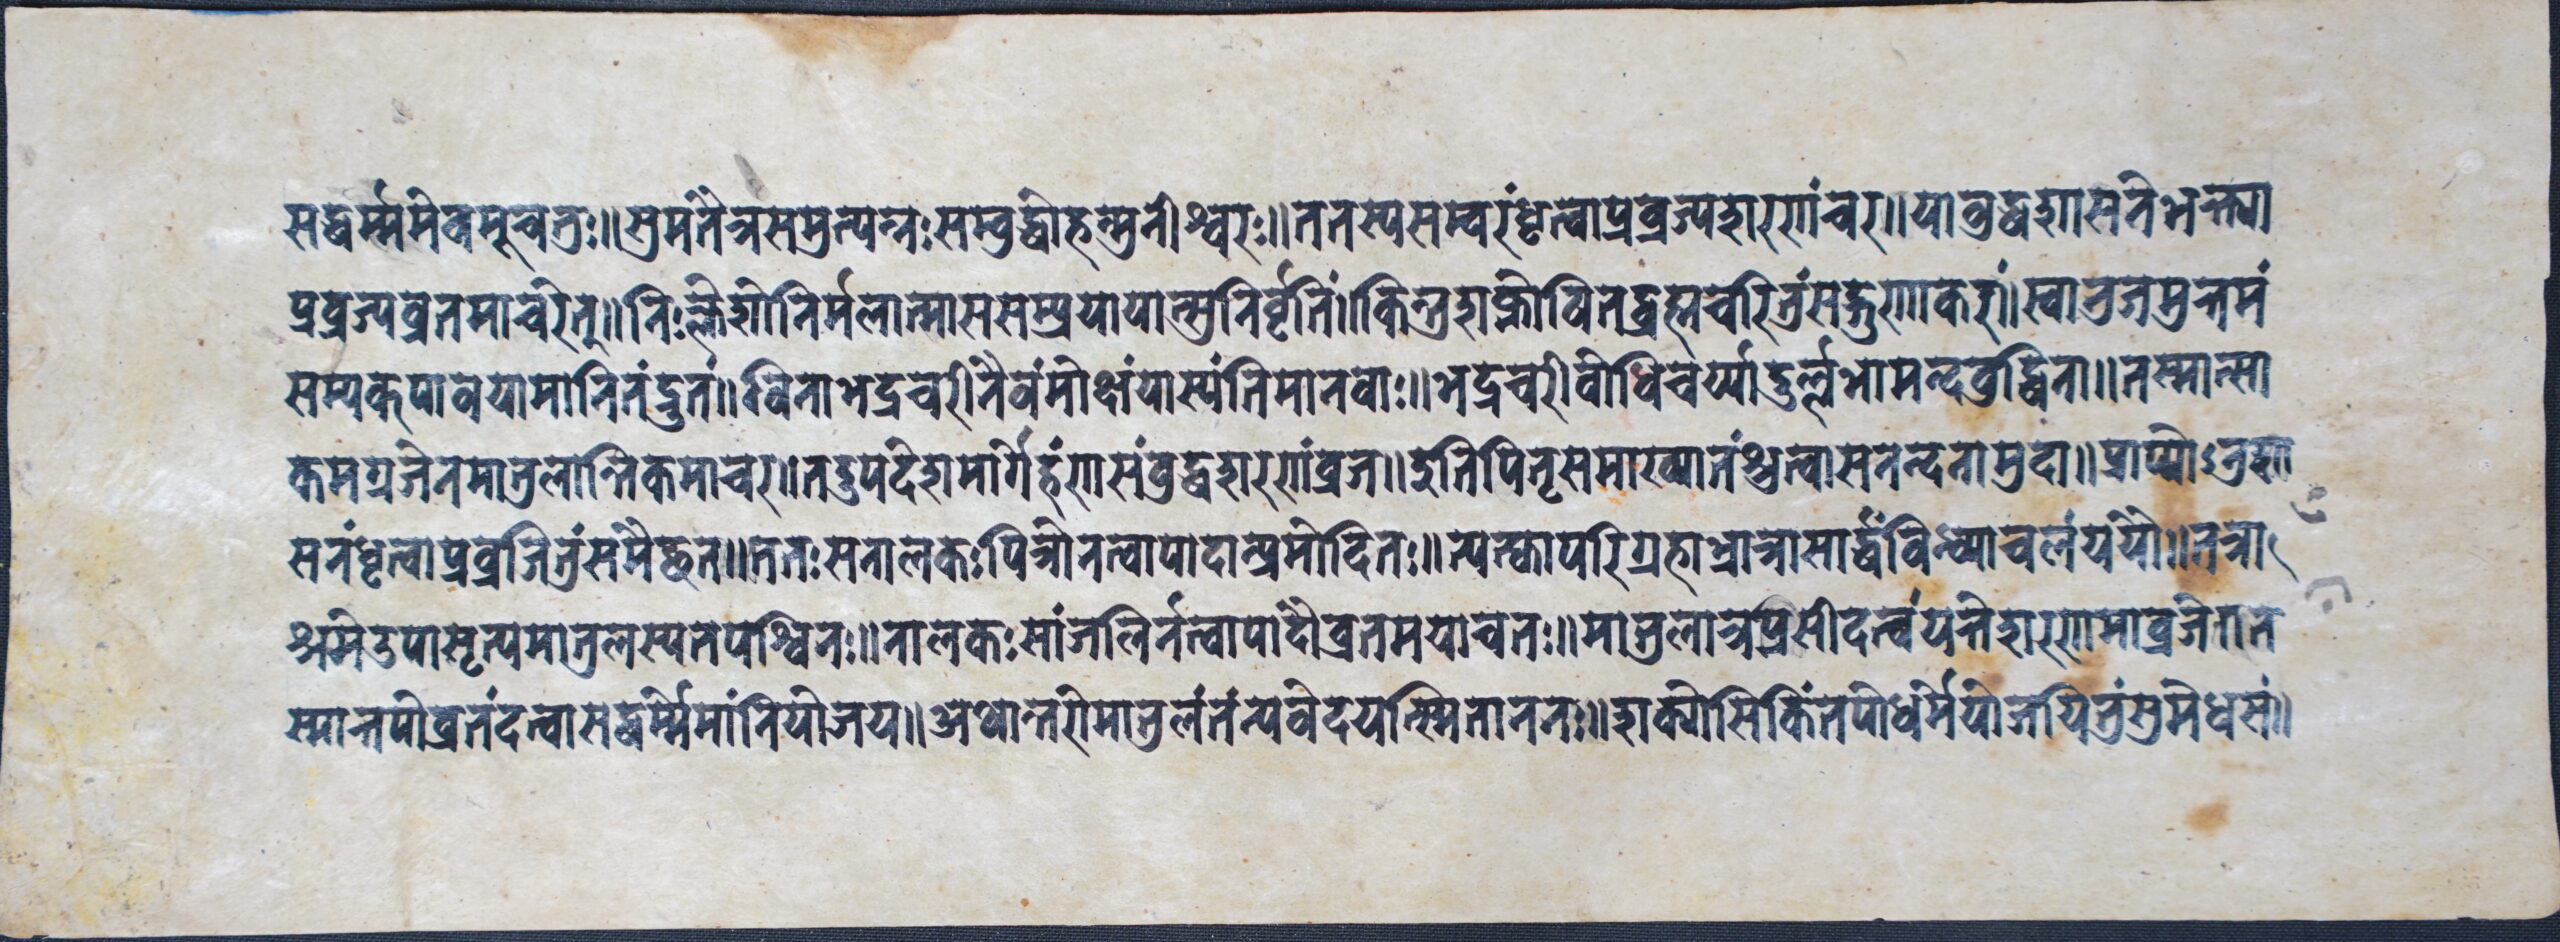 सद्धर्म्ममेवमूचतुः॥सुमतेत्रसमुत्पन्नःसम्बुद्धोर्हन्मुनीश्वरः॥ततस्यसम्वरंधृत्वाप्रव्रज्यशरणंचर॥योबुद्धशासनेभक्त्या
प्रव्रज्यव्रतमाचरेत्॥निःक्लेशोनिर्मलात्मासससम्प्रयायात्सुनिर्वृतिं॥किन्तुशक्नोषितद्ब्रह्मचरितुंसद्गुणाकरं॥स्वानुजमुत्तमं
सम्यक्पावयामोनितंद्रुतं॥विनाभद्रचरींनैवंमोक्षंयास्यंतिमानवाः॥भद्रचरीबोधिचर्य्यादुर्ल्लभामन्दबुद्धिना॥तस्मात्सा
कमग्रजेनमातुलान्तिकमाचर॥तदुपदेशमार्गेहंणसंबुद्धशरणंव्रज॥इतिपितृसमाख्यातंश्रुत्वासनन्दनोमुदा॥प्राप्योऽनुशा
सनंधृत्वाप्रव्रजितुंसमैच्छत॥ततःसनालकःपित्रोनत्वापादान्प्रमोदितः॥त्यत्क्वापरिग्रहाभ्रात्रासार्द्धंविन्ध्याचलंययौ॥तत्रा
श्रमेउपासृत्यमातुलस्यतपश्विनः॥नालकःसांजलिर्नत्वापादौव्रतमयाचतः॥मातुलात्रप्रसीदत्वंयत्तेशरणमाव्रजेत
स्मात्तपोव्रतंदत्वासद्धर्म्मेमांनियोजय॥अथान्तरोमातुलंतंन्यवेदयत्स्मिताननः॥शक्योसिकिंतपोधर्मेयोजयितुंसुमेधसं॥